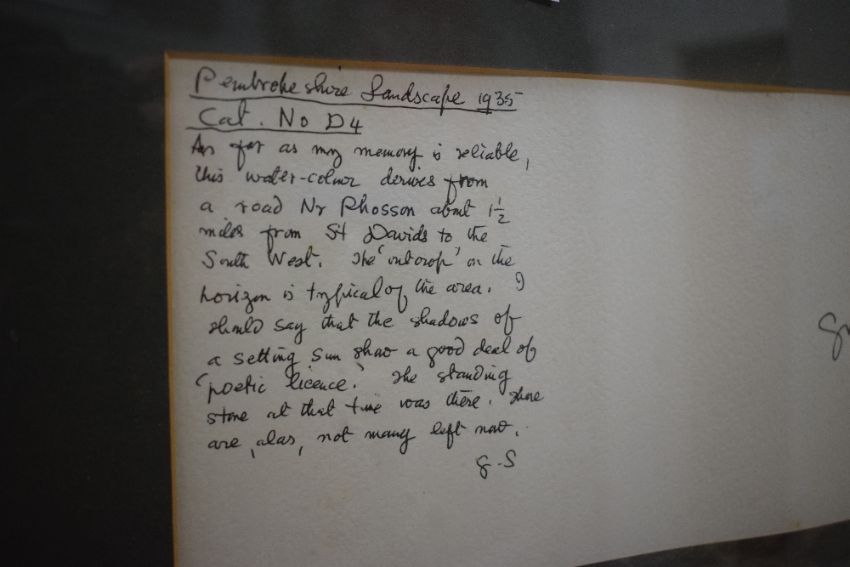 Pembrokeshire Landscape 1935
Cat. No D4
As far as my memory is reliable,
this water-colour derives from
a road Nr Rhosson about 1½
miles from St Davids to the
South West. The 'outcrop' on the
horizon is typical of the area. I
should say that the shadows of
a setting sun show a good deal of
'poetic licence.' The standing
stone at that time was there. There
are, alas, not many left now.
G.S